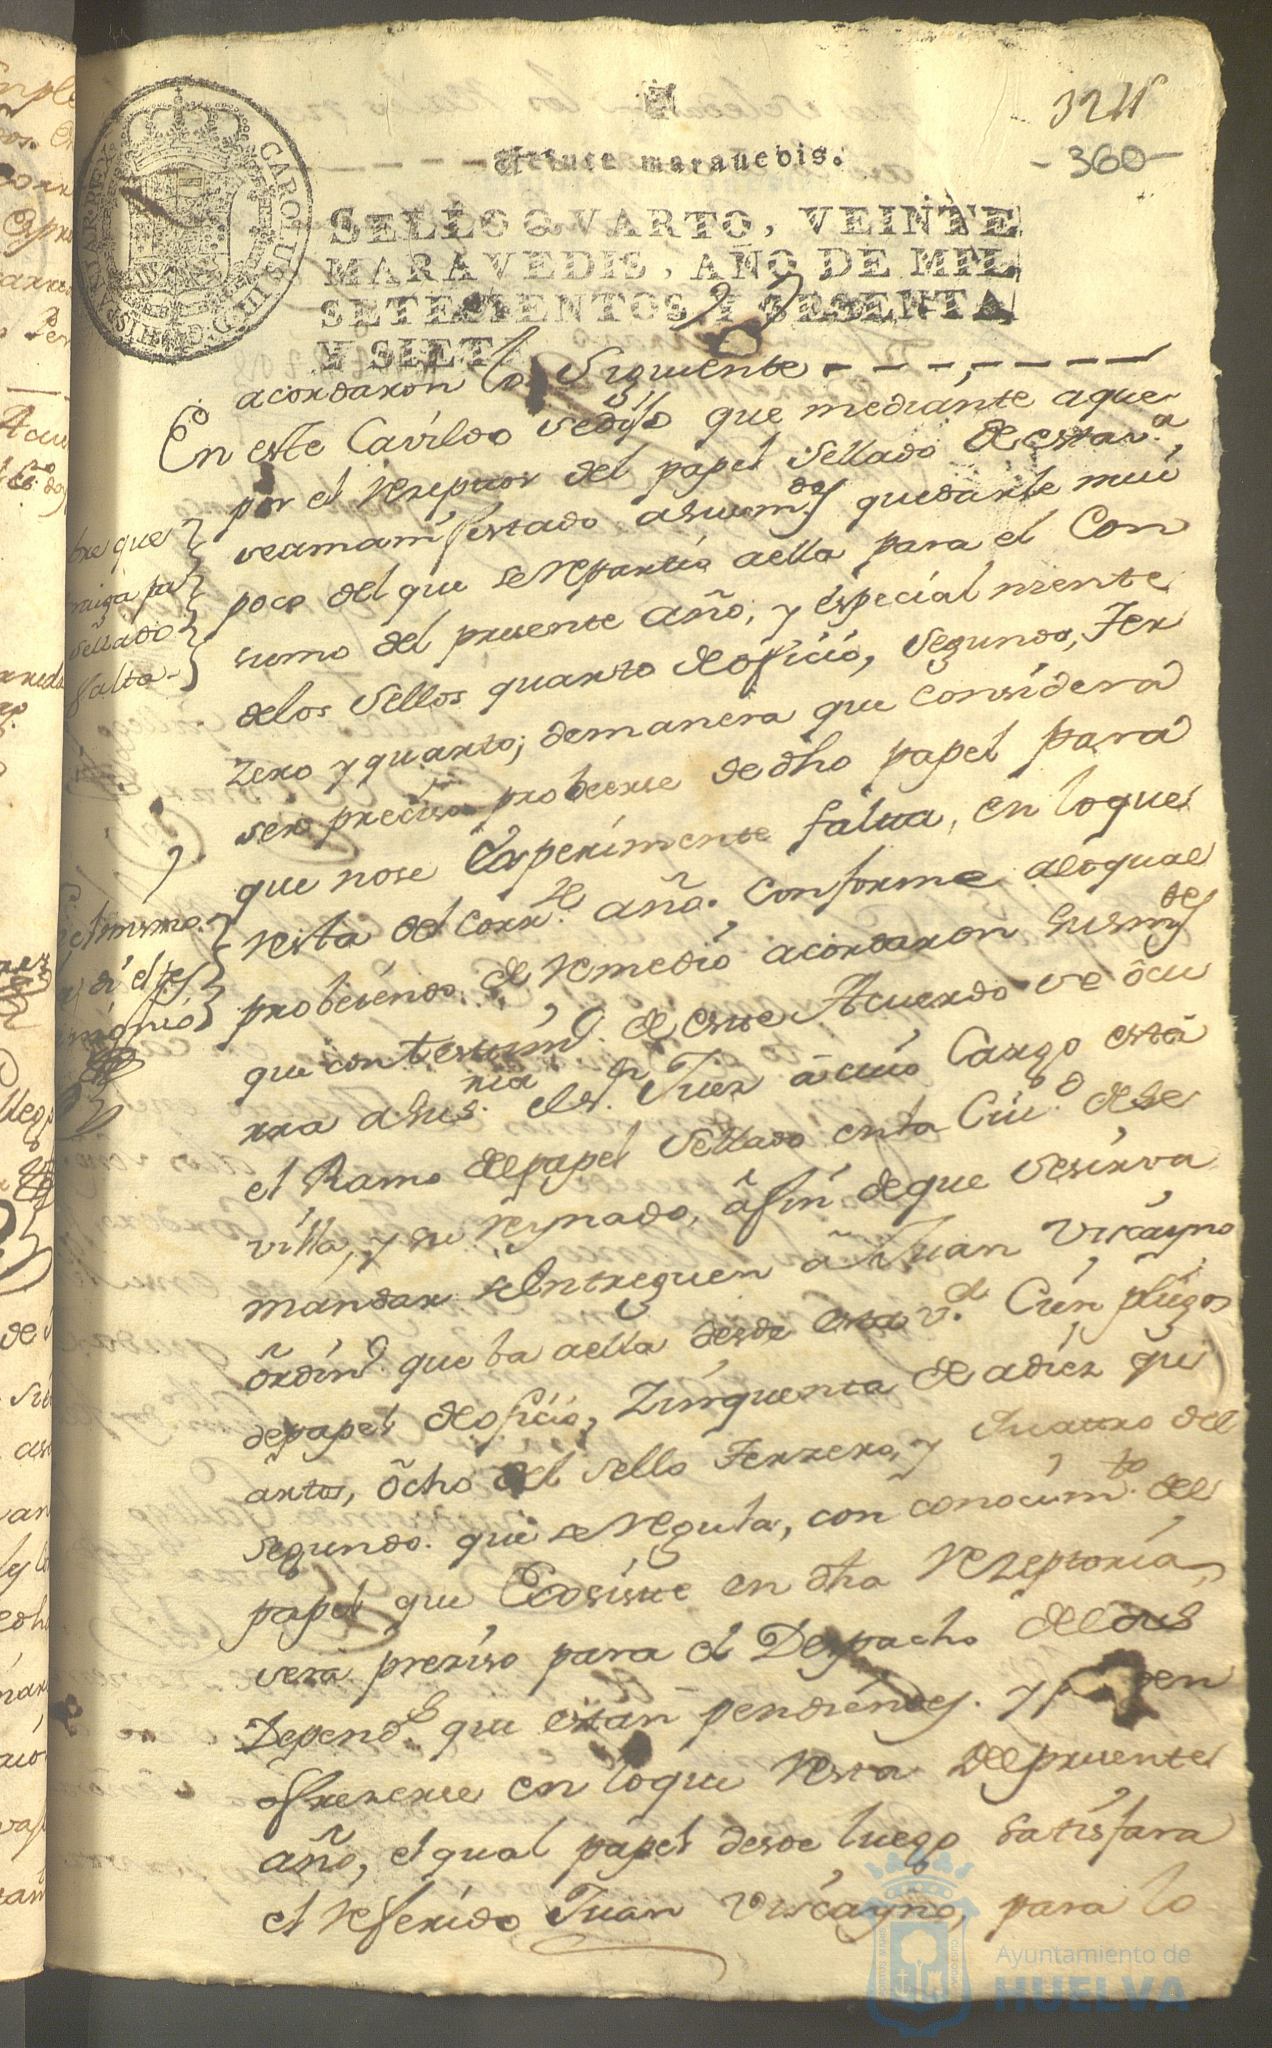 3211
-360-
Veinte marauedis.
SELLO QVARTO, VEINTE
MARAVEDIS, AÑO DE MIL
SETECIENTOS Y SESENTA
Y SIETE.
CAROLUS III D. G. HISPANIAR. REX
acordaron lo Siguiente
En este Cavildo se dijo que mediante aque
por el Rezeptor del papel Sellado de esta v.ª
se a manifestado a sus m.des quedarle mui
poco del que se Repartio a ella para el Con
sumo del presente año, y especialmente
de los Sellos quarto de oficio, Segundo, Ter
zero y quarto; de manera que considera
ser preciso probeerse de dho papel para
que no se Experimente falta, en lo que
resta del corr.te año. Conforme a lo qual
probeiendo de Remedio acordaron sus m.des
que con testim.º de este Acuerdo se ocu
rra a su S.ria el S.r Juez a cuio Cargo está
el Ramo de papel Sellado en la Ciu.d de Se
villa, y su Reynado, a fin de que se sirva
mandar se Entreguen a Juan Viscayno
ordin.º que ba a ella desde esta v.ª Cien pliegos
de papel de oficio, Zinquenta de a diez qu
artos, ocho del sello Terzero, y quatro del
segundo. que se Regula, con conocim.to del
papel que Existe en dha Rezeptoria,
sera preziso para el Despacho de las
Depend.s que estan pendientes. y p den
ofrezerse en lo que Resta del presente
año, el qual papel desde luego satisfara
el referido Juan Viscayno, para lo
bre que
raiga pa
sellado
falta
el mismo.
di el tes
imonio
Ayuntamiento de
HUELVA